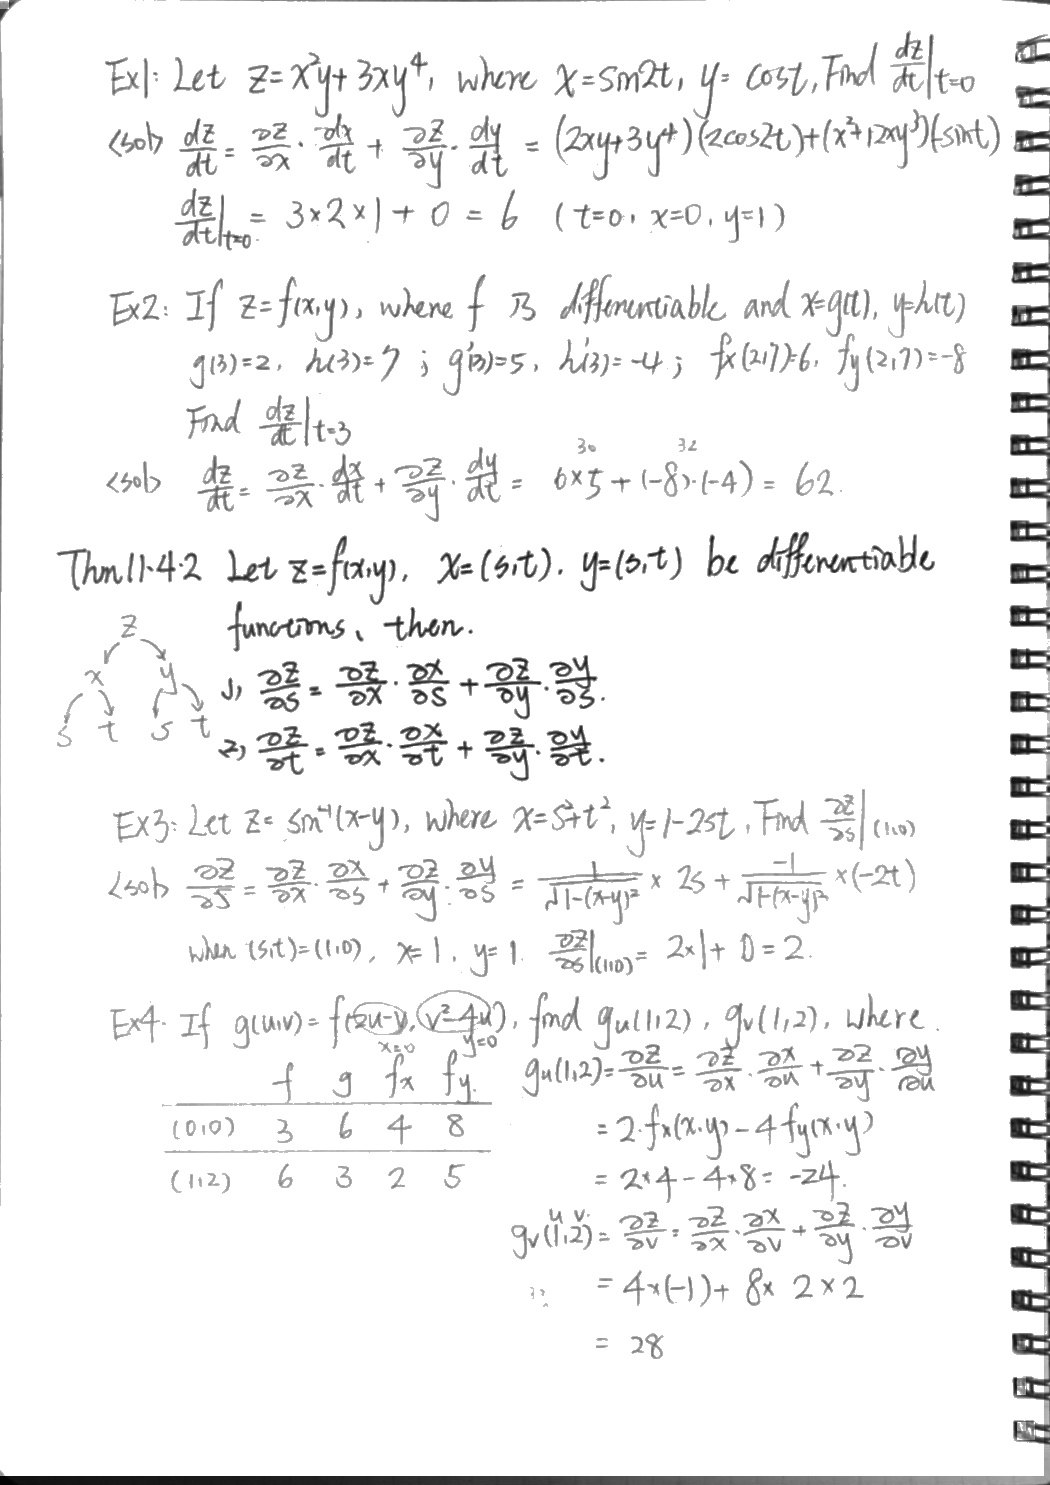 Ex1: Let z=x²y+3xy⁴, where x=sin2t, y=cost, Find dz/dt|t=0
<sol> dz/dt = ∂z/∂x · dx/dt + ∂z/∂y · dy/dt = (2xy+3y⁴)(2cos2t)+(x²+12xy³)(-sint)
dz/dt|t=0 = 3×2×1+0 = 6 (t=0, x=0, y=1)
Ex2: If z=f(x,y), where f is differentiable and x=g(t), y=h(t)
g(3)=2, h(3)=7; g'(3)=5, h'(3)=-4; fx(2,7)=6, fy(2,7)=-8
Find dz/dt|t=3
30 32
<sol> dz/dt = ∂z/∂x · dx/dt + ∂z/∂y · dy/dt = 6×5+(-8)·(-4) = 62.
Thm 11.4.2 Let z=f(x,y), x=(s,t), y=(s,t) be differentiable
functions, then.
z
x y
s t s t
1) ∂z/∂s = ∂z/∂x · ∂x/∂s + ∂z/∂y · ∂y/∂s.
2) ∂z/∂t = ∂z/∂x · ∂x/∂t + ∂z/∂y · ∂y/∂t.
Ex3: Let z=sin⁻¹(x-y), where x=s²+t², y=1-2st, Find ∂z/∂s|(1,0)
<sol> ∂z/∂s = ∂z/∂x · ∂x/∂s + ∂z/∂y · ∂y/∂s = 1/√1-(x-y)² × 2s + -1/√1-(x-y)² ×(-2t)
when (s,t)=(1,0), x=1, y=1. ∂z/∂s|(1,0) = 2×1+0=2.
Ex4. If g(u,v)=f(2u-v, v²-4u), find gu(1,2), gv(1,2), where.
x=0 y=0
f g fx fy
(0,0) 3 6 4 8
(1,2) 6 3 2 5
gu(1,2)= ∂z/∂u = ∂z/∂x · ∂x/∂u + ∂z/∂y · ∂y/∂u
= 2·fx(x,y)-4fy(x,y)
= 2×4-4×8= -24.
u v.
gv(1,2)= ∂z/∂v = ∂z/∂x · ∂x/∂v + ∂z/∂y · ∂y/∂v
= 4×(-1)+ 8× 2×2
= 28